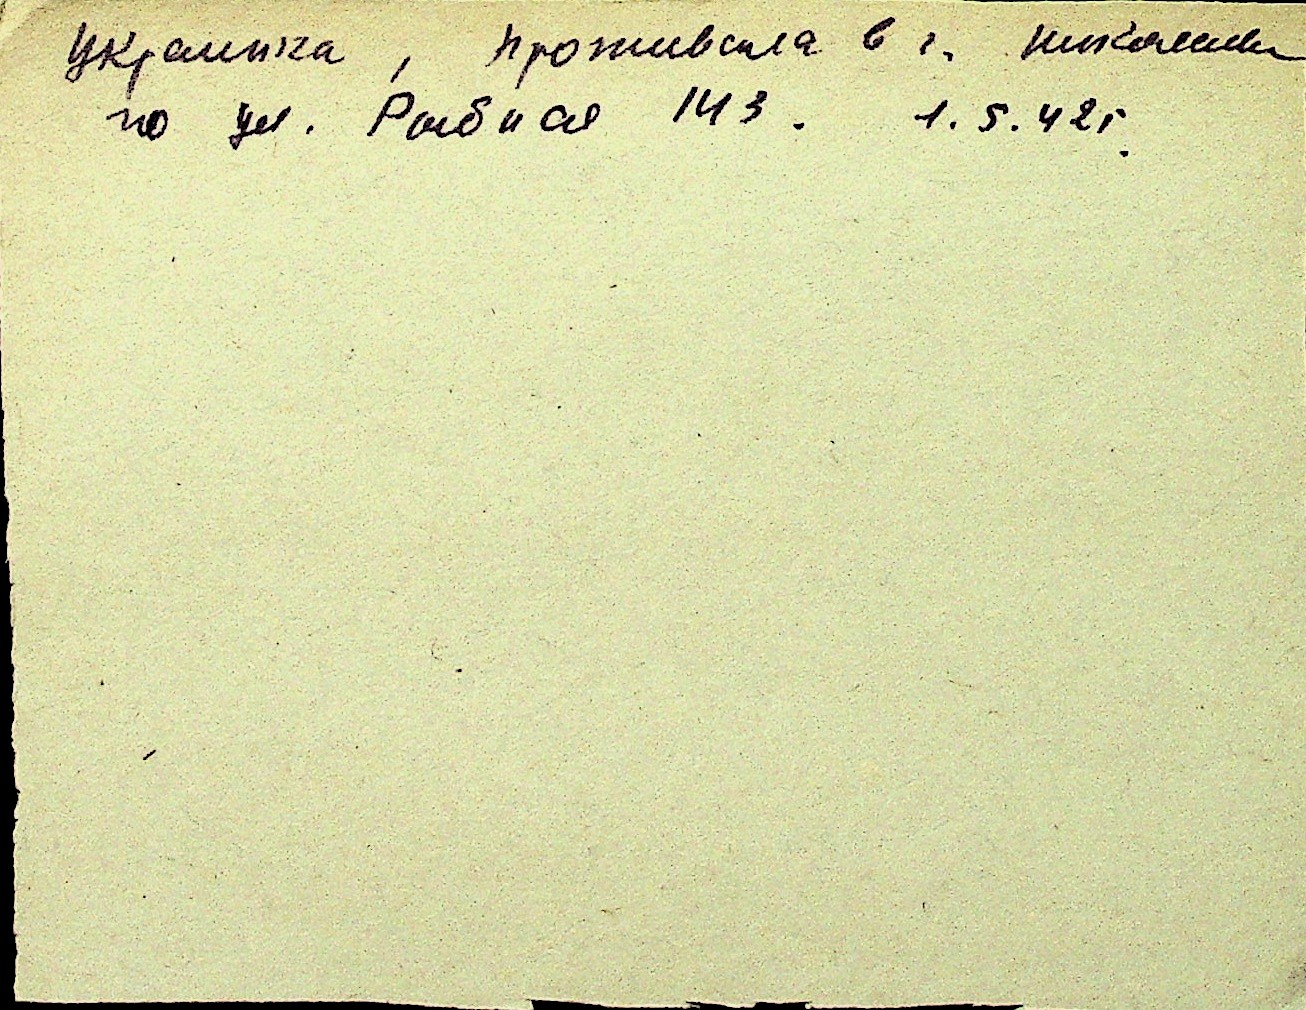 Украинка, проживала в г. Николаеве
по ул. Рыбная 143. 1.5.42г.